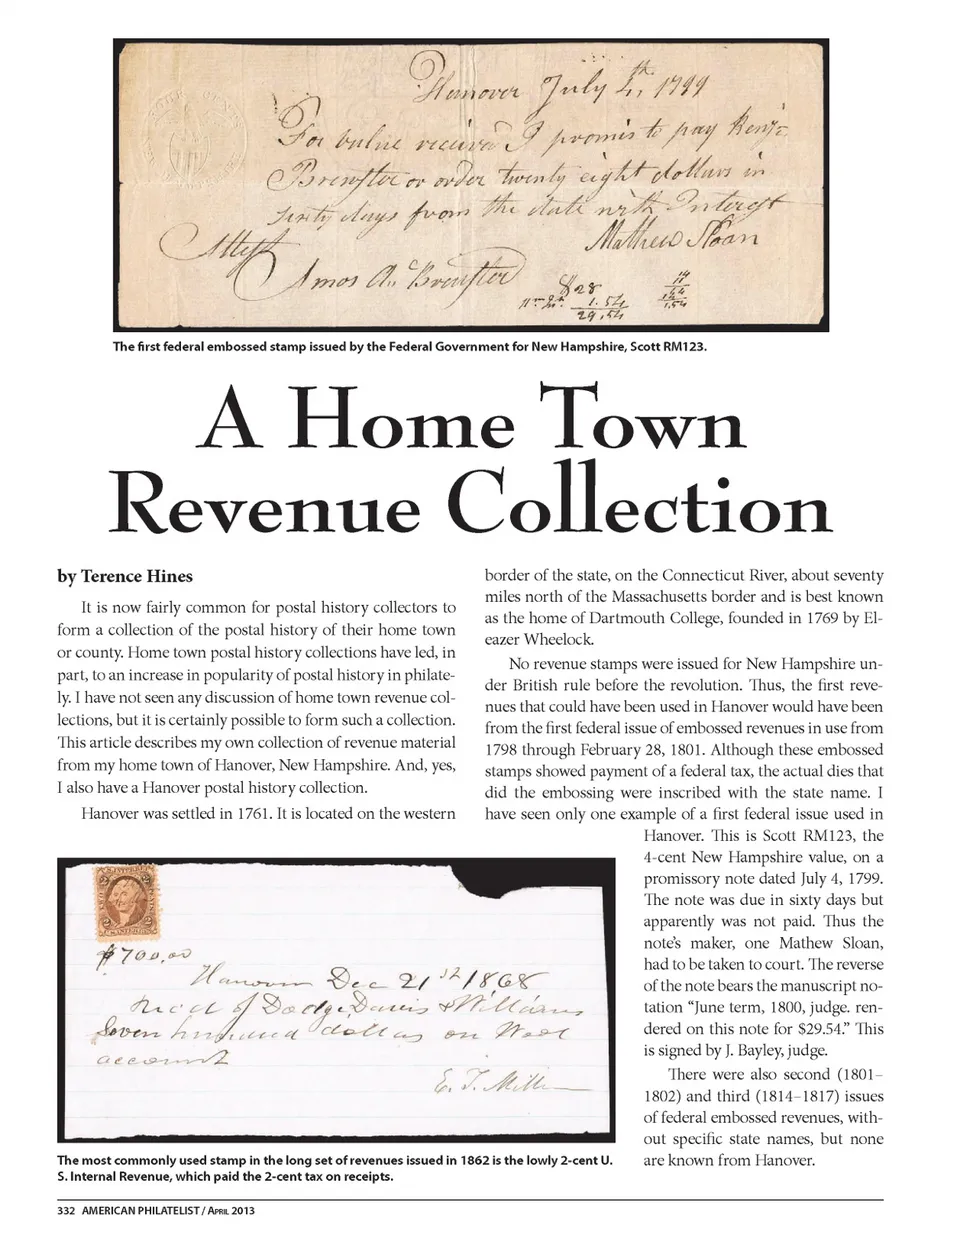 Hanover July 4th. 1799
For value received I promis to pay Benja.
Brewster or order twenty eight dollars in
sixty days from the date with Interest
Mathew Sloan
Attest
Amos A. Brewster
$28
1.54
29.54
1.54
The first federal embossed stamp issued by the Federal Government for New Hampshire, Scott RM123.
A Home Town
Revenue Collection
by Terence Hines
It is now fairly common for postal history collectors to
form a collection of the postal history of their home town
or county. Home town postal history collections have led, in
part, to an increase in popularity of postal history in philate-
ly. I have not seen any discussion of home town revenue col-
lections, but it is certainly possible to form such a collection.
This article describes my own collection of revenue material
from my home town of Hanover, New Hampshire. And, yes,
I also have a Hanover postal history collection.
Hanover was settled in 1761. It is located on the western
border of the state, on the Connecticut River, about seventy
miles north of the Massachusetts border and is best known
as the home of Dartmouth College, founded in 1769 by El-
eazer Wheelock.
No revenue stamps were issued for New Hampshire un-
der British rule before the revolution. Thus, the first reve-
nues that could have been used in Hanover would have been
from the first federal issue of embossed revenues in use from
1798 through February 28, 1801. Although these embossed
stamps showed payment of a federal tax, the actual dies that
did the embossing were inscribed with the state name. I
have seen only one example of a first federal issue used in
Hanover. This is Scott RM123, the
4-cent New Hampshire value, on a
promissory note dated July 4, 1799.
The note was due in sixty days but
apparently was not paid. Thus the
note's maker, one Mathew Sloan,
had to be taken to court. The reverse
of the note bears the manuscript no-
tation "June term, 1800, judge. ren-
dered on this note for $29.54." This
is signed by J. Bayley, judge.
There were also second (1801–
1802) and third (1814–1817) issues
of federal embossed revenues, with-
out specific state names, but none
are known from Hanover.
2 2
$700.00
Hanover Dec 21st 1868
Rec'd of Dodge Davis & Williams
Seven hundred dollars on Wool
account
E. T. Miller
The most commonly used stamp in the long set of revenues issued in 1862 is the lowly 2-cent U.
S. Internal Revenue, which paid the 2-cent tax on receipts.
332 AMERICAN PHILATELIST / APRIL 2013